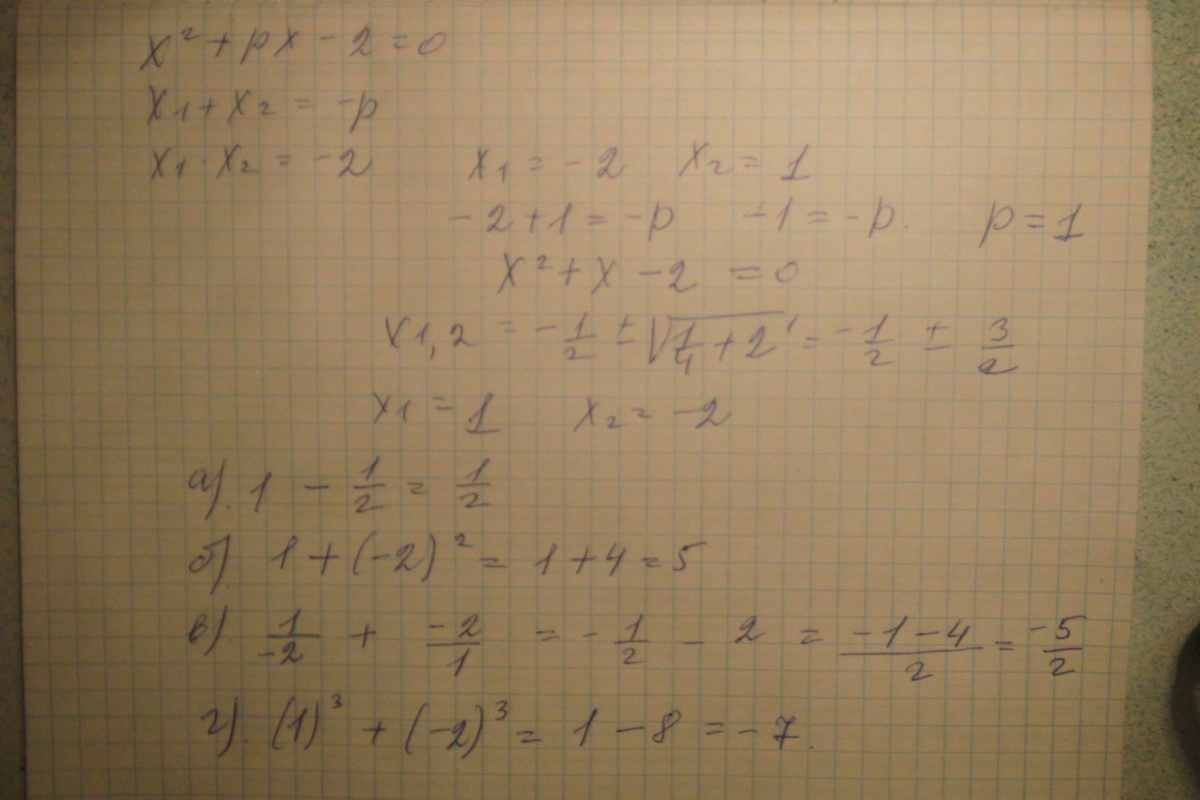 x² + px - 2 = 0
x1 + x2 = -p
x1 · x2 = -2 x1 = -2 x2 = 1
-2 + 1 = -p -1 = -p. p = 1
x² + x - 2 = 0
x1,2 = -1/2 ± √(1/4 + 2) = -1/2 ± 3/2
x1 = 1 x2 = -2
а). 1 - 1/2 = 1/2
б). 1 + (-2)² = 1 + 4 = 5
в). 1/-2 + -2/1 = -1/2 - 2 = -1-4/2 = -5/2
г). (1)³ + (-2)³ = 1 - 8 = -7.